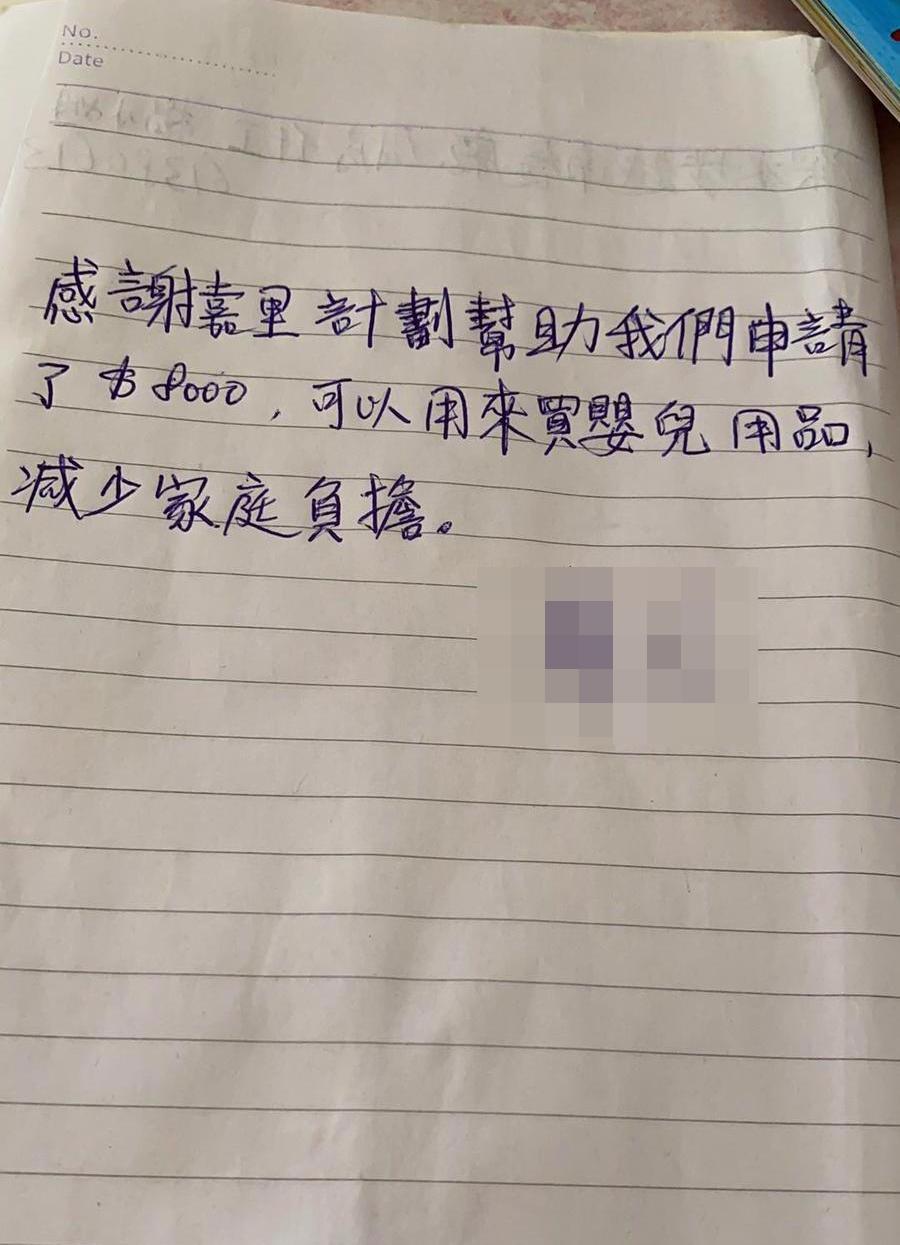 No.
Date
感謝嘉里計劃幫助我們申請
了$8000，可以用來買嬰兒用品，
减少家庭負擔。